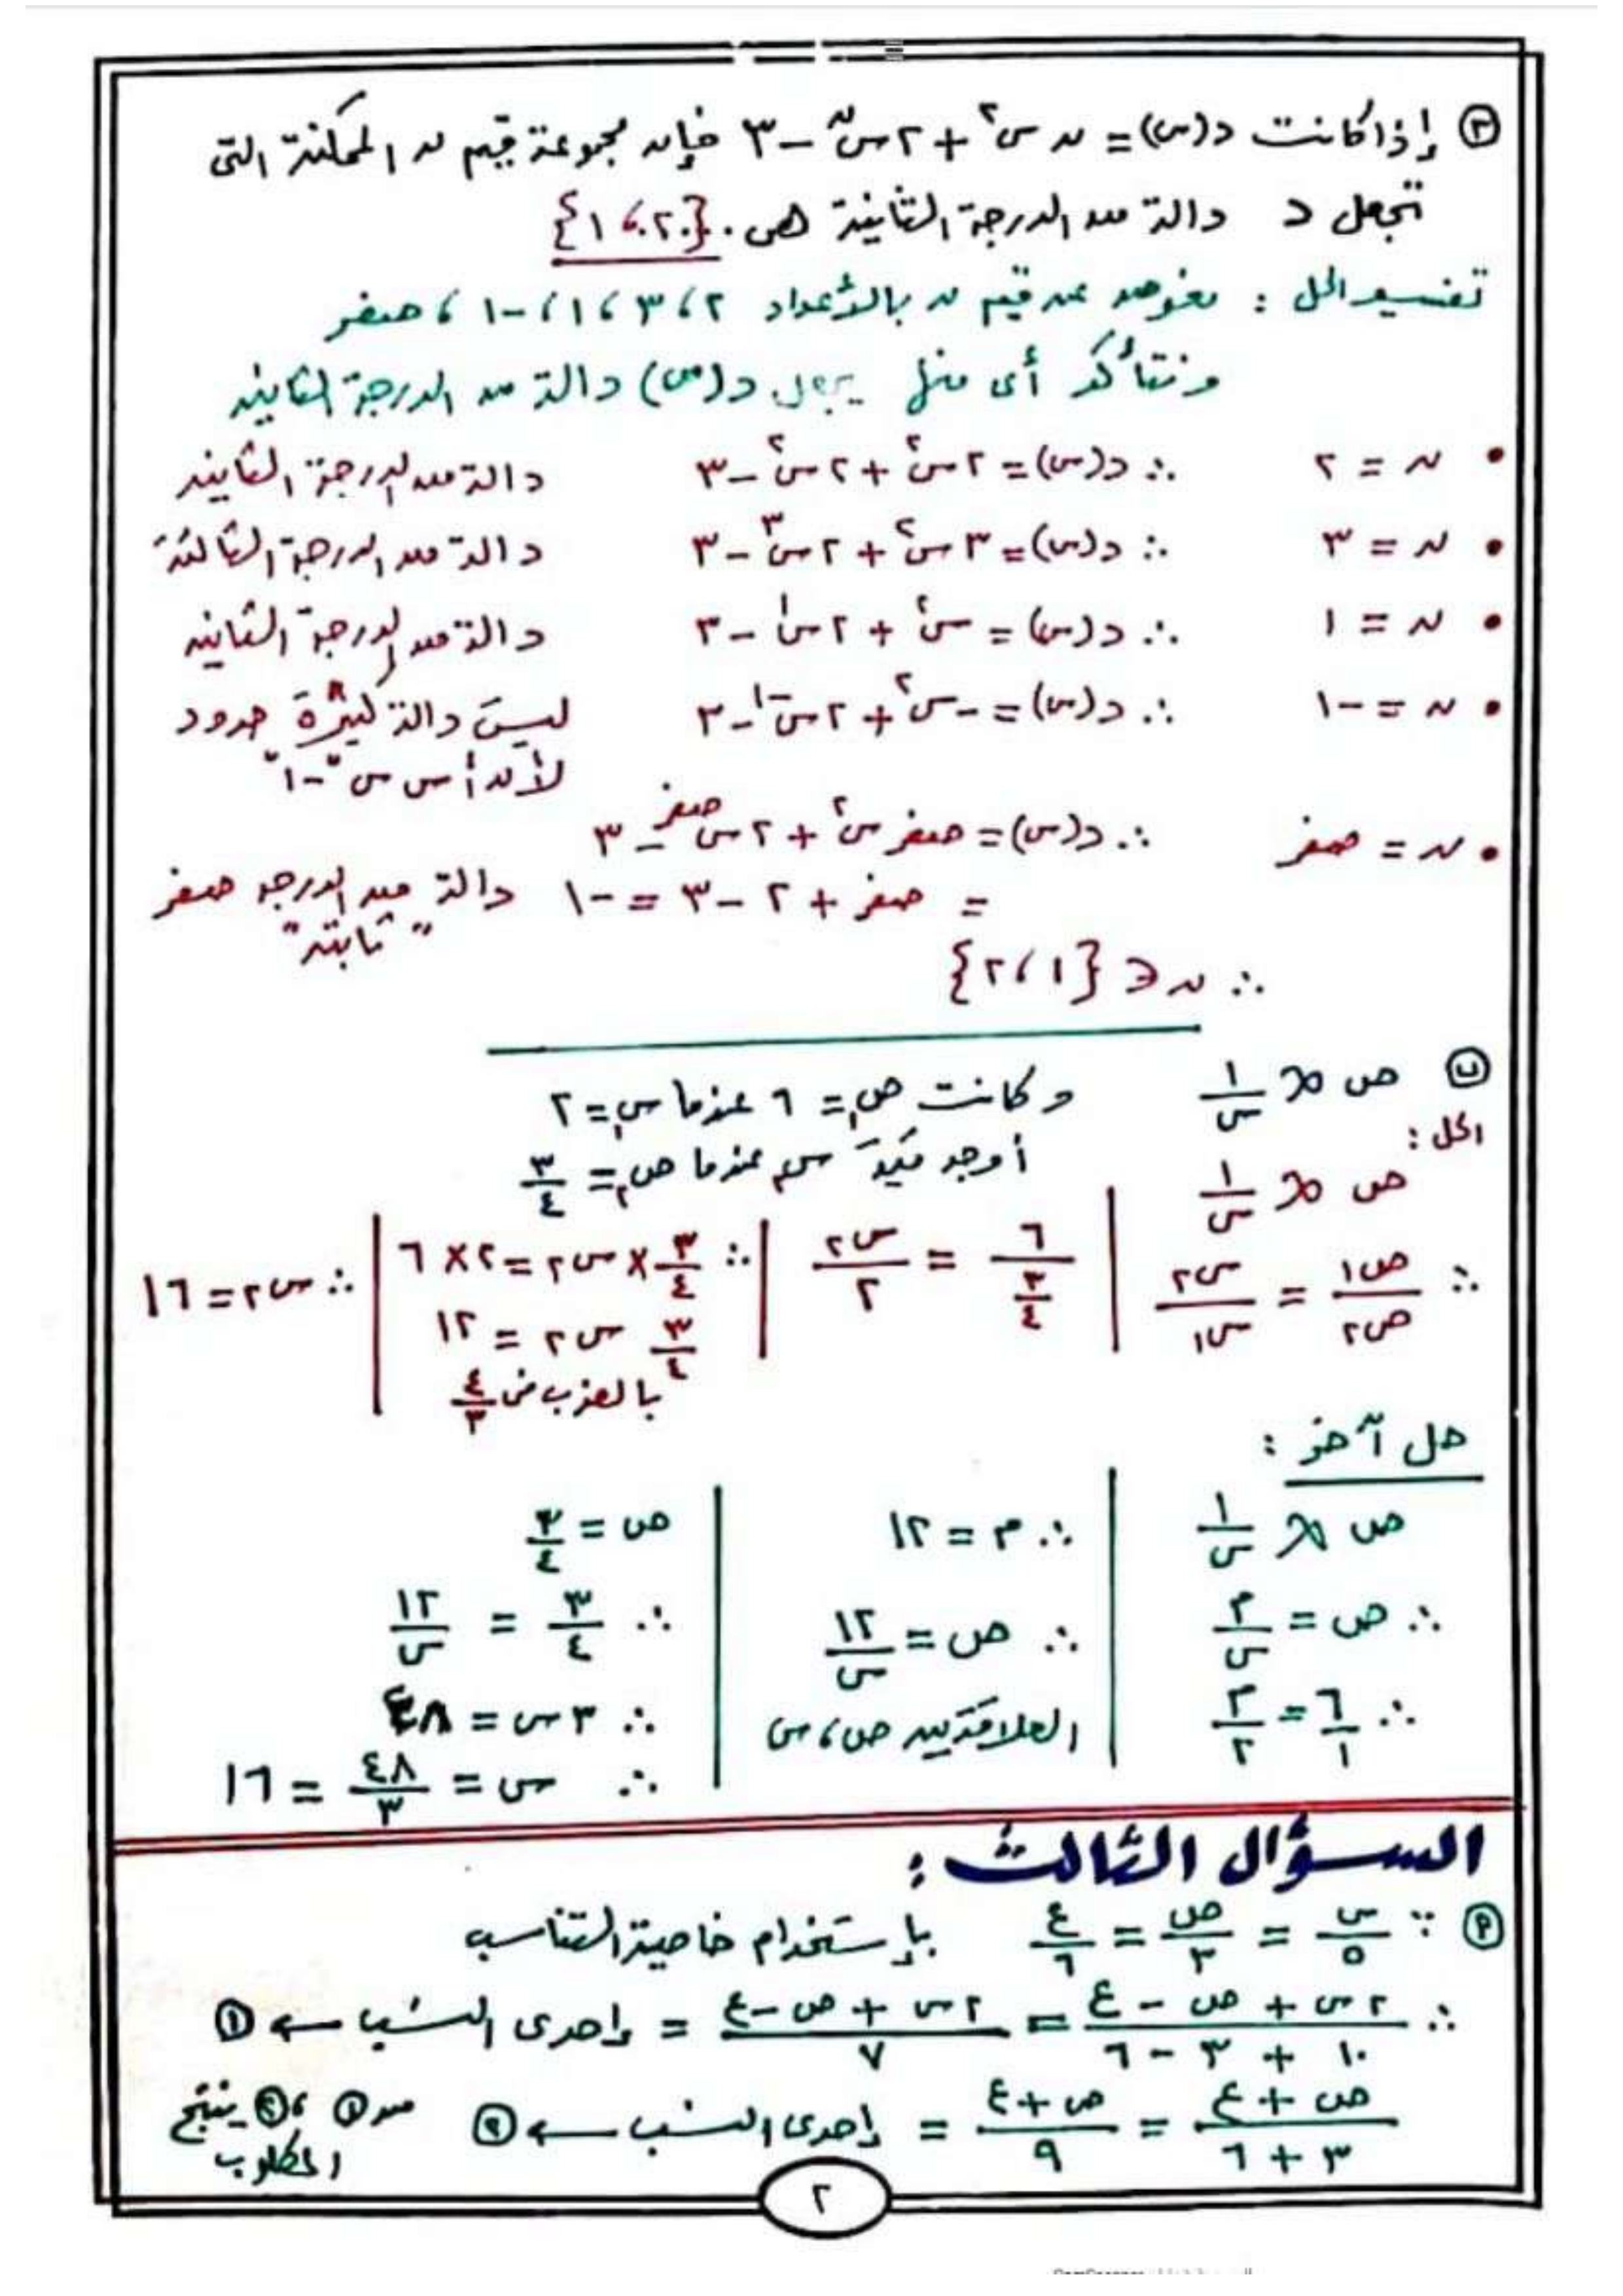 (٣) إذا كانت د(س) = ن س^٢ + ٢س^ن - ٣ فإن مجموعة قيم ن الممكنة التى
تجعل د دالة من الدرجة الثانية هى . {١، ٢}
تفسير الحل : نعوض عن قيم ن بالأعداد ٢، ٣، ١، -١، صفر
ونتأكد أى منها يجعل د(س) دالة من الدرجة الثانية
• ن = ٢ ∴ د(س) = ٢س^٢ + ٢س^٢ - ٣ دالة من الدرجة الثانية
• ن = ٣ ∴ د(س) = ٣س^٢ + ٢س^٣ - ٣ دالة من الدرجة الثالثة
• ن = ١ ∴ د(س) = س^٢ + ٢س^١ - ٣ دالة من الدرجة الثانية
• ن = -١ ∴ د(س) = -س^٢ + ٢س^-١ - ٣ ليست دالة كثيرة حدود
لأن أس س "-١"
• ن = صفر ∴ د(س) = صفر س^٢ + ٢س^صفر - ٣
= صفر + ٢ - ٣ = -١ دالة من الدرجة صفر
"ثابتة"
∴ ن ∈ {١، ٢}
(ب) ص ∝ ١/س وكانت ص١ = ٦ عندما س١ = ٢
الحل : أوجد قيمة س٢ عندما ص٢ = ٣/٤
ص ∝ ١/س
∴ ص١/ص٢ = س٢/س١
٦/(٣/٤) = س٢/٢
∴ ٣/٤ × س٢ = ٢ × ٦
٣/٤ س٢ = ١٢
بالضرب فى ٤/٣
∴ س٢ = ١٦
حل آخر :
ص ∝ ١/س
∴ ص = م/س
∴ ٦/١ = م/٢
∴ م = ١٢
∴ ص = ١٢/س
العلاقة بين ص، س
ص = ٣/٤
∴ ٣/٤ = ١٢/س
∴ ٣س = ٤٨
∴ س = ٤٨/٣ = ١٦
السؤال الثالث :
(٢) ∵ س/٥ = ص/٣ = ع/٦ بإستخدام خاصية التناسب
∴ (٢س + ص - ع)/(١٠ + ٣ - ٦) = (٢س + ص - ع)/٧ = إحدى النسب ← (١)
(ص + ع)/(٣ + ٦) = (ص + ع)/٩ = إحدى النسب ← (٢) من (١)، (٢) ينتج
المطلوب
٢